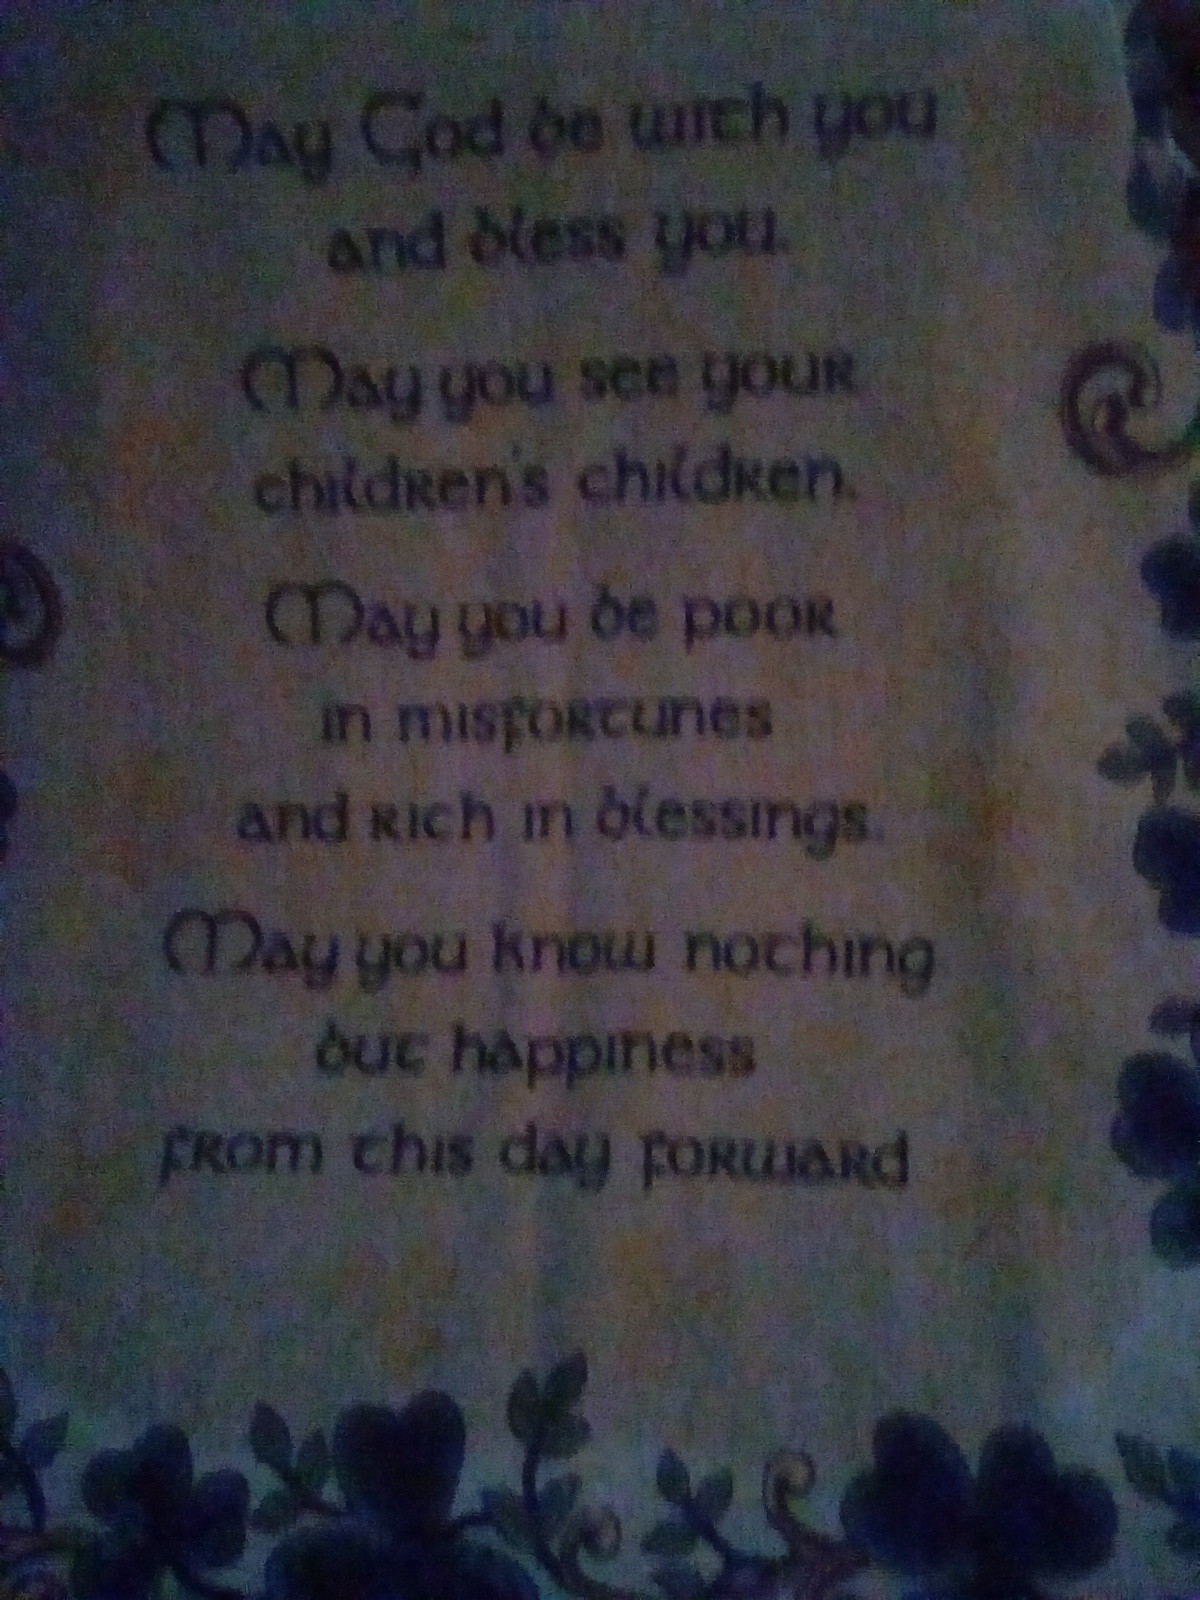 May God be with you
and bless you.
May you see your
children's children.
May you be poor
in misfortunes
and rich in blessings.
May you know nothing
but happiness
from this day forward